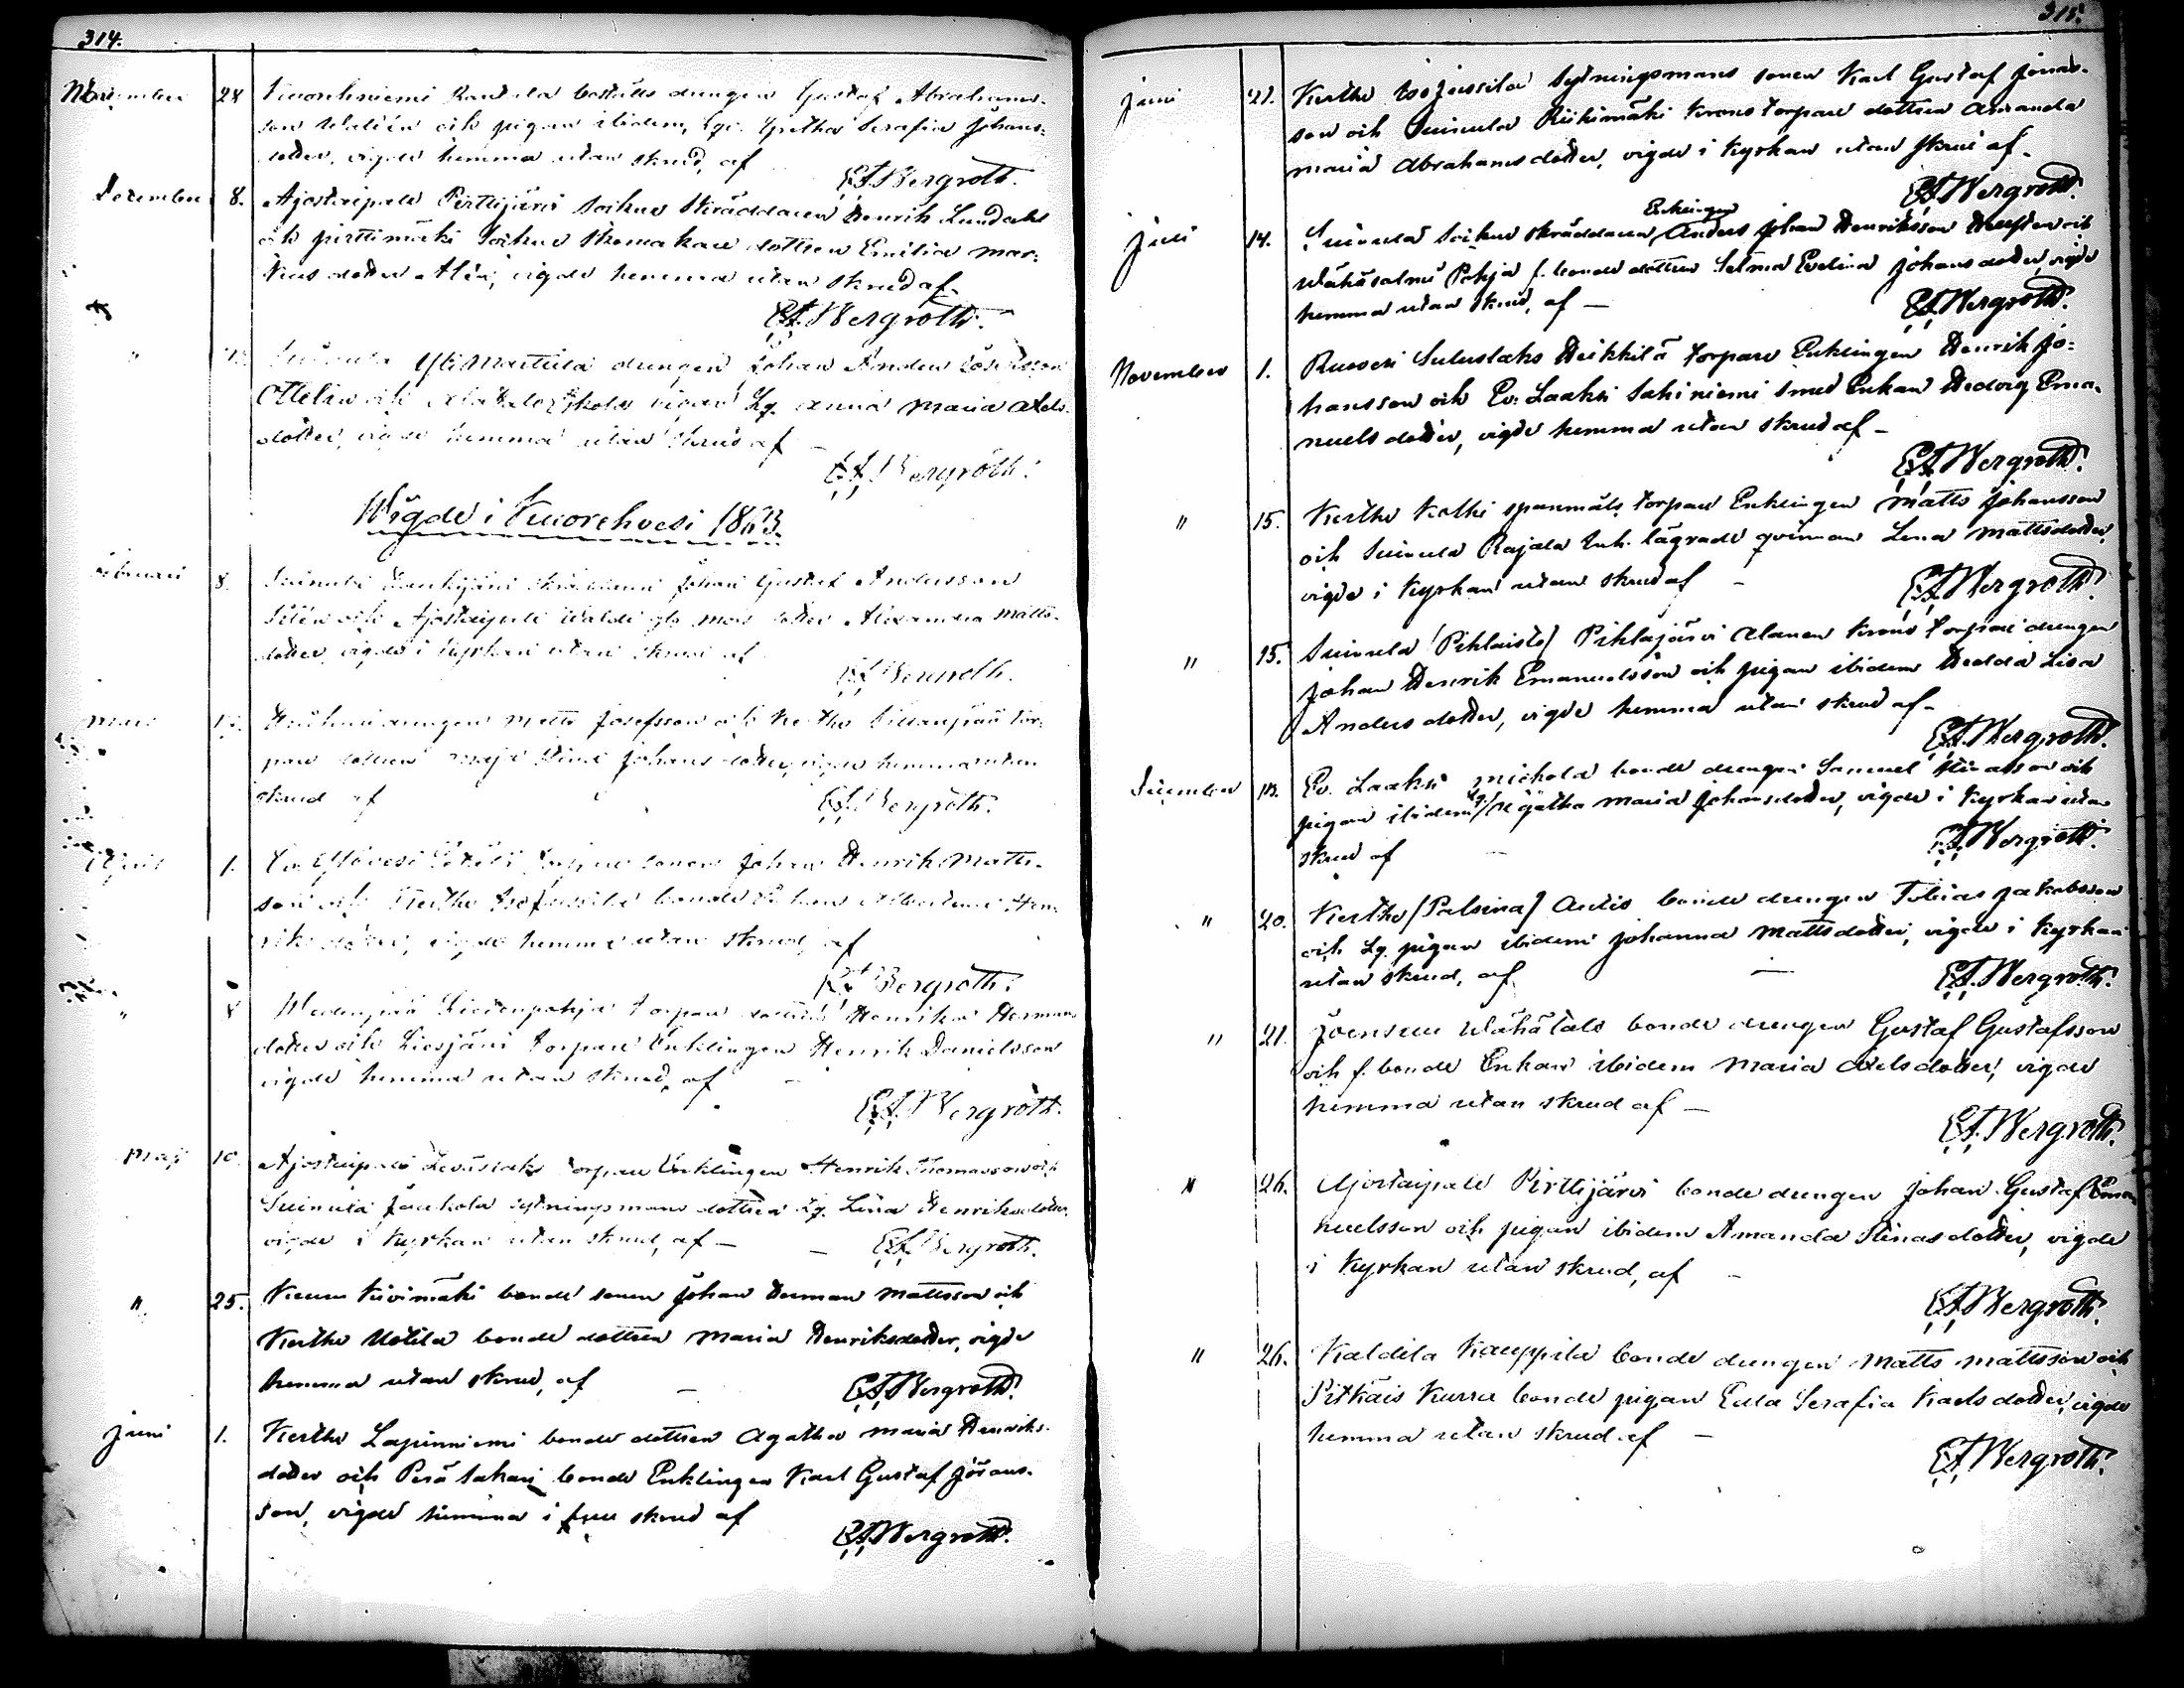 314.
November 28 Kuorehniemi Rantala beställs drengen Gustaf Abrahams-
son Walén och pigan ibidem, Lgr. Gretha Serafia Johans-
dotter, vigde hemma utan skrud, af
E.A. Bergroth.
December 8. Ajostaipale Pirttijärvi Sockne Skräddaren Henrik Lundahl
och pirttimäki Sockne Skomakare dottren Emilia Mar-
kus dotter Alén, vigde hemma utan skrud af
E.A. Bergroth.
" Suinula Ylimattila drengen Johan Anders
Ottelin och pigan Lg. Anna Maria Axels-
dotter, vigde hemma utan skrud af –
E.A. Bergroth.
Wigde i Kuorehvesi 1863.
Februari 8. Suinula Skräddaren Johan Gustaf Andersson
och Ajostaipale dotter Alexandra Matts-
dotter, vigde i Kyrkan utan skrud af
E.A. Bergroth.
Mars drengen Matts Josefsson och Kertho tor-
pare dottren Maja Stina Johans dotter, vigde hemma utan
skrud af
E.A. Bergroth.
April 1. sonen Johan Henrik Matts-
son och Kertho Isojussila bonde Enkan Albertina Hen-
riks dotter, vigde hemma utan skrud, af
E.A. Bergroth.
" 8 torpare dottren Henrika Hermans
dotter och Liesjärvi torpare Enklingen Henrik Danielsson
vigde hemma utan skrud, af –
E.A. Bergroth.
Maji 10. Ajostaipale torpare Enklingen Henrik Thomasson och
Suinula Jaakola sytningsmans dottren Lg. Lisa Henriksdotter,
vigde i Kyrkan utan skrud, af – – E.A. Bergroth.
" 25. Kuuru Kivimäki bonde sonen Johan Herman Mattsson och
Kertho Uotila bonde dottren Maria Henriksdotter, vigde
hemma utan skrud, af – E.A. Bergroth.
Juni 1. Kertho Lapinniemi bonde dottren Agatha Maria Henriks-
dotter och Perä Sakari bonde Enklingen Karl Gustaf Johans-
son, vigde hemma i full skrud af
E.A. Bergroth.
315.
Juni 21. Kertho Isojussila Sytningsmans sonen Karl Gustaf Jonas-
son och Suinula Riihimäki Krono torpare dottren Amanda
Maria Abrahams dotter, vigde i Kyrkan utan skrud af –
E.A. Bergroth.
Enklingen
Juli 14. Suinula Sockne skräddaren Anders Johan Henriksson och
Wähäsalmi Pohja f. bonde dottren Selma Evelina Johans dotter, vigde
hemma utan skrud, af – E.A. Bergroth.
November 1. Ruovesi Suluslaks Heikkilä torpare Enklingen Henrik Jo-
hansson och Ev. Laaksi Sahiniemi smed Enkan Hedvig Ema-
nuels dotter, vigde hemma utan skrud af –
E.A. Bergroth.
" 15. Kertho Kolhi spanmåls torpare Enklingen Matts Johansson
och Suinula Rajala Inh. lägrade qvinnan Lena Mattsdotter,
vigde i Kyrkan utan skrud af – E.A. Bergroth.
" 15. Suinula /Pihlaisto/ Pihlajärvi Alanen Krono torpare drengen
Johan Henrik Emanuelsson och pigan ibidem Hedda Lisa
Anders dotter, vigde hemma utan skrud af –
E.A. Bergroth.
December 18. Ev. Laaksi Mickola bonde drengen Samuel Stinasson och
pigan ibidem /Lg/ Agatha Maria Johansdotter, vigde i Kyrkan utan
skrud af – E.A. Bergroth.
" 20. Kertho /Palsina/ Antis bonde drengen Tobias Jakobsson
och Lg. pigan ibidem Johanna Mattsdotter, vigde i Kyrkan
utan skrud, af – E.A. Bergroth.
" 21. Joensuu Wähätalo bonde drengen Gustaf Gustafsson
och f. bonde Enkan ibidem Maria Axelsdotter, vigde
hemma utan skrud af –
E.A. Bergroth.
" 26. Ajostaipale Pirttijärvi bonde drengen Johan Gustaf Ema-
nuelsson och pigan ibidem Amanda Stinas dotter, vigde
i Kyrkan utan skrud, af –
E.A. Bergroth.
" 26. Kaldila Kauppila bonde drengen Matts Mattsson och
Pitkäis Kurru bonde pigan Eva Serafia Karls dotter, vigde
hemma utan skrud af –
E.A. Bergroth.